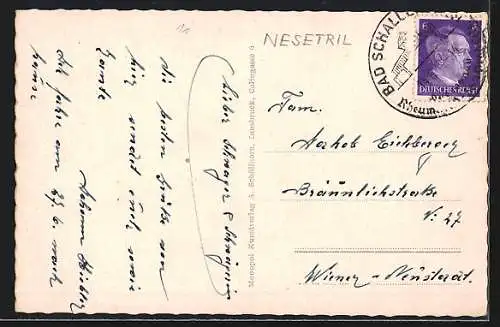 NESETRIL
BAD SCHALLER
Rheum
6
DEUTSCHES REICH
Fam.
Jakob Eichberger
Bräunlichstraße
Nr. 27
Wiener-Neustadt
Lieber Schwager & Schwägerin
die besten Grüße von
hier sendet euch
Tante
Ich fahre am 27. 6. nach
hause
Monopol Kunstverlag A. Schöllhorn, Innsbruck, Colingasse 9